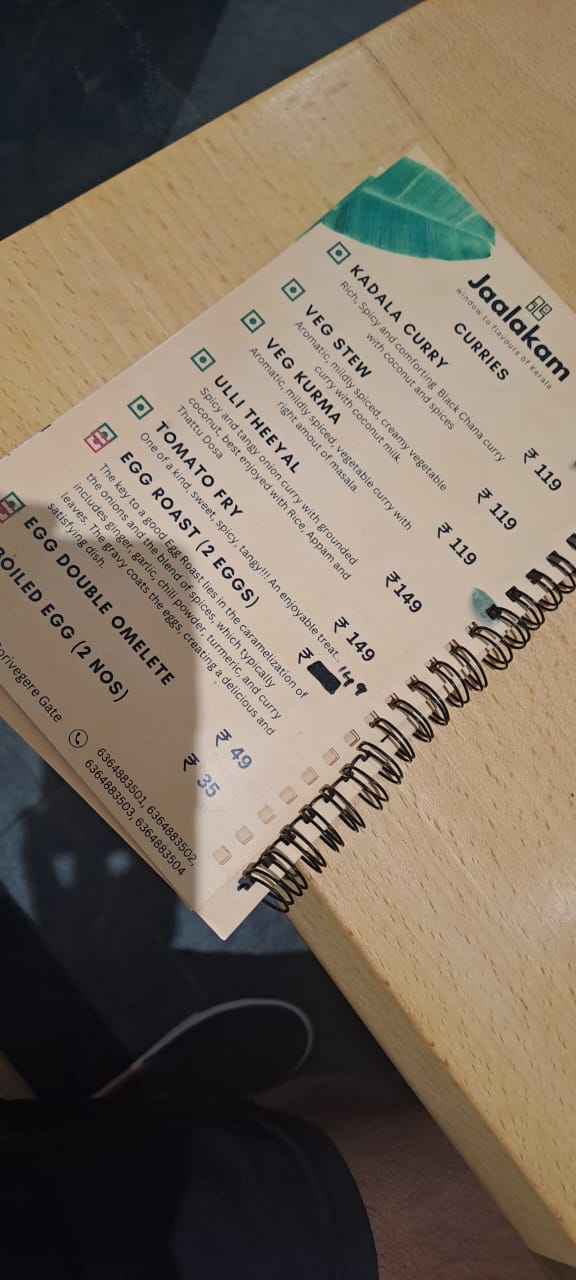 Jaalakam
window to flavours of Kerala
CURRIES
KADALA CURRY ₹ 119
Rich, Spicy and comforting Black Chana curry
with coconut and spices
VEG STEW ₹ 119
Aromatic, mildly spiced, creamy vegetable
curry with coconut milk
VEG KURMA ₹ 119
Aromatic, mildly spiced, vegetable curry with
right amout of masala
ULLI THEEYAL ₹149
Spicy and tangy onion curry with grounded
coconut, best enjoyed with Rice, Appam and
Thattu Dosa
TOMATO FRY ₹ 149
One of a kind, sweet, spicy, tangy!!! An enjoyable treat..
EGG ROAST (2 EGGS) ₹
The key to a good Egg Roast lies in the caramelization of
the onions and the blend of spices, which typically
includes ginger, garlic, chili powder, turmeric, and curry
leaves. The gravy coats the eggs, creating a delicious and
satisfying dish.
EGG DOUBLE OMELETE ₹ 49
BOILED EGG (2 NOS) ₹ 35
Gate
6364883501, 6364883502,
6364883503, 6364883504